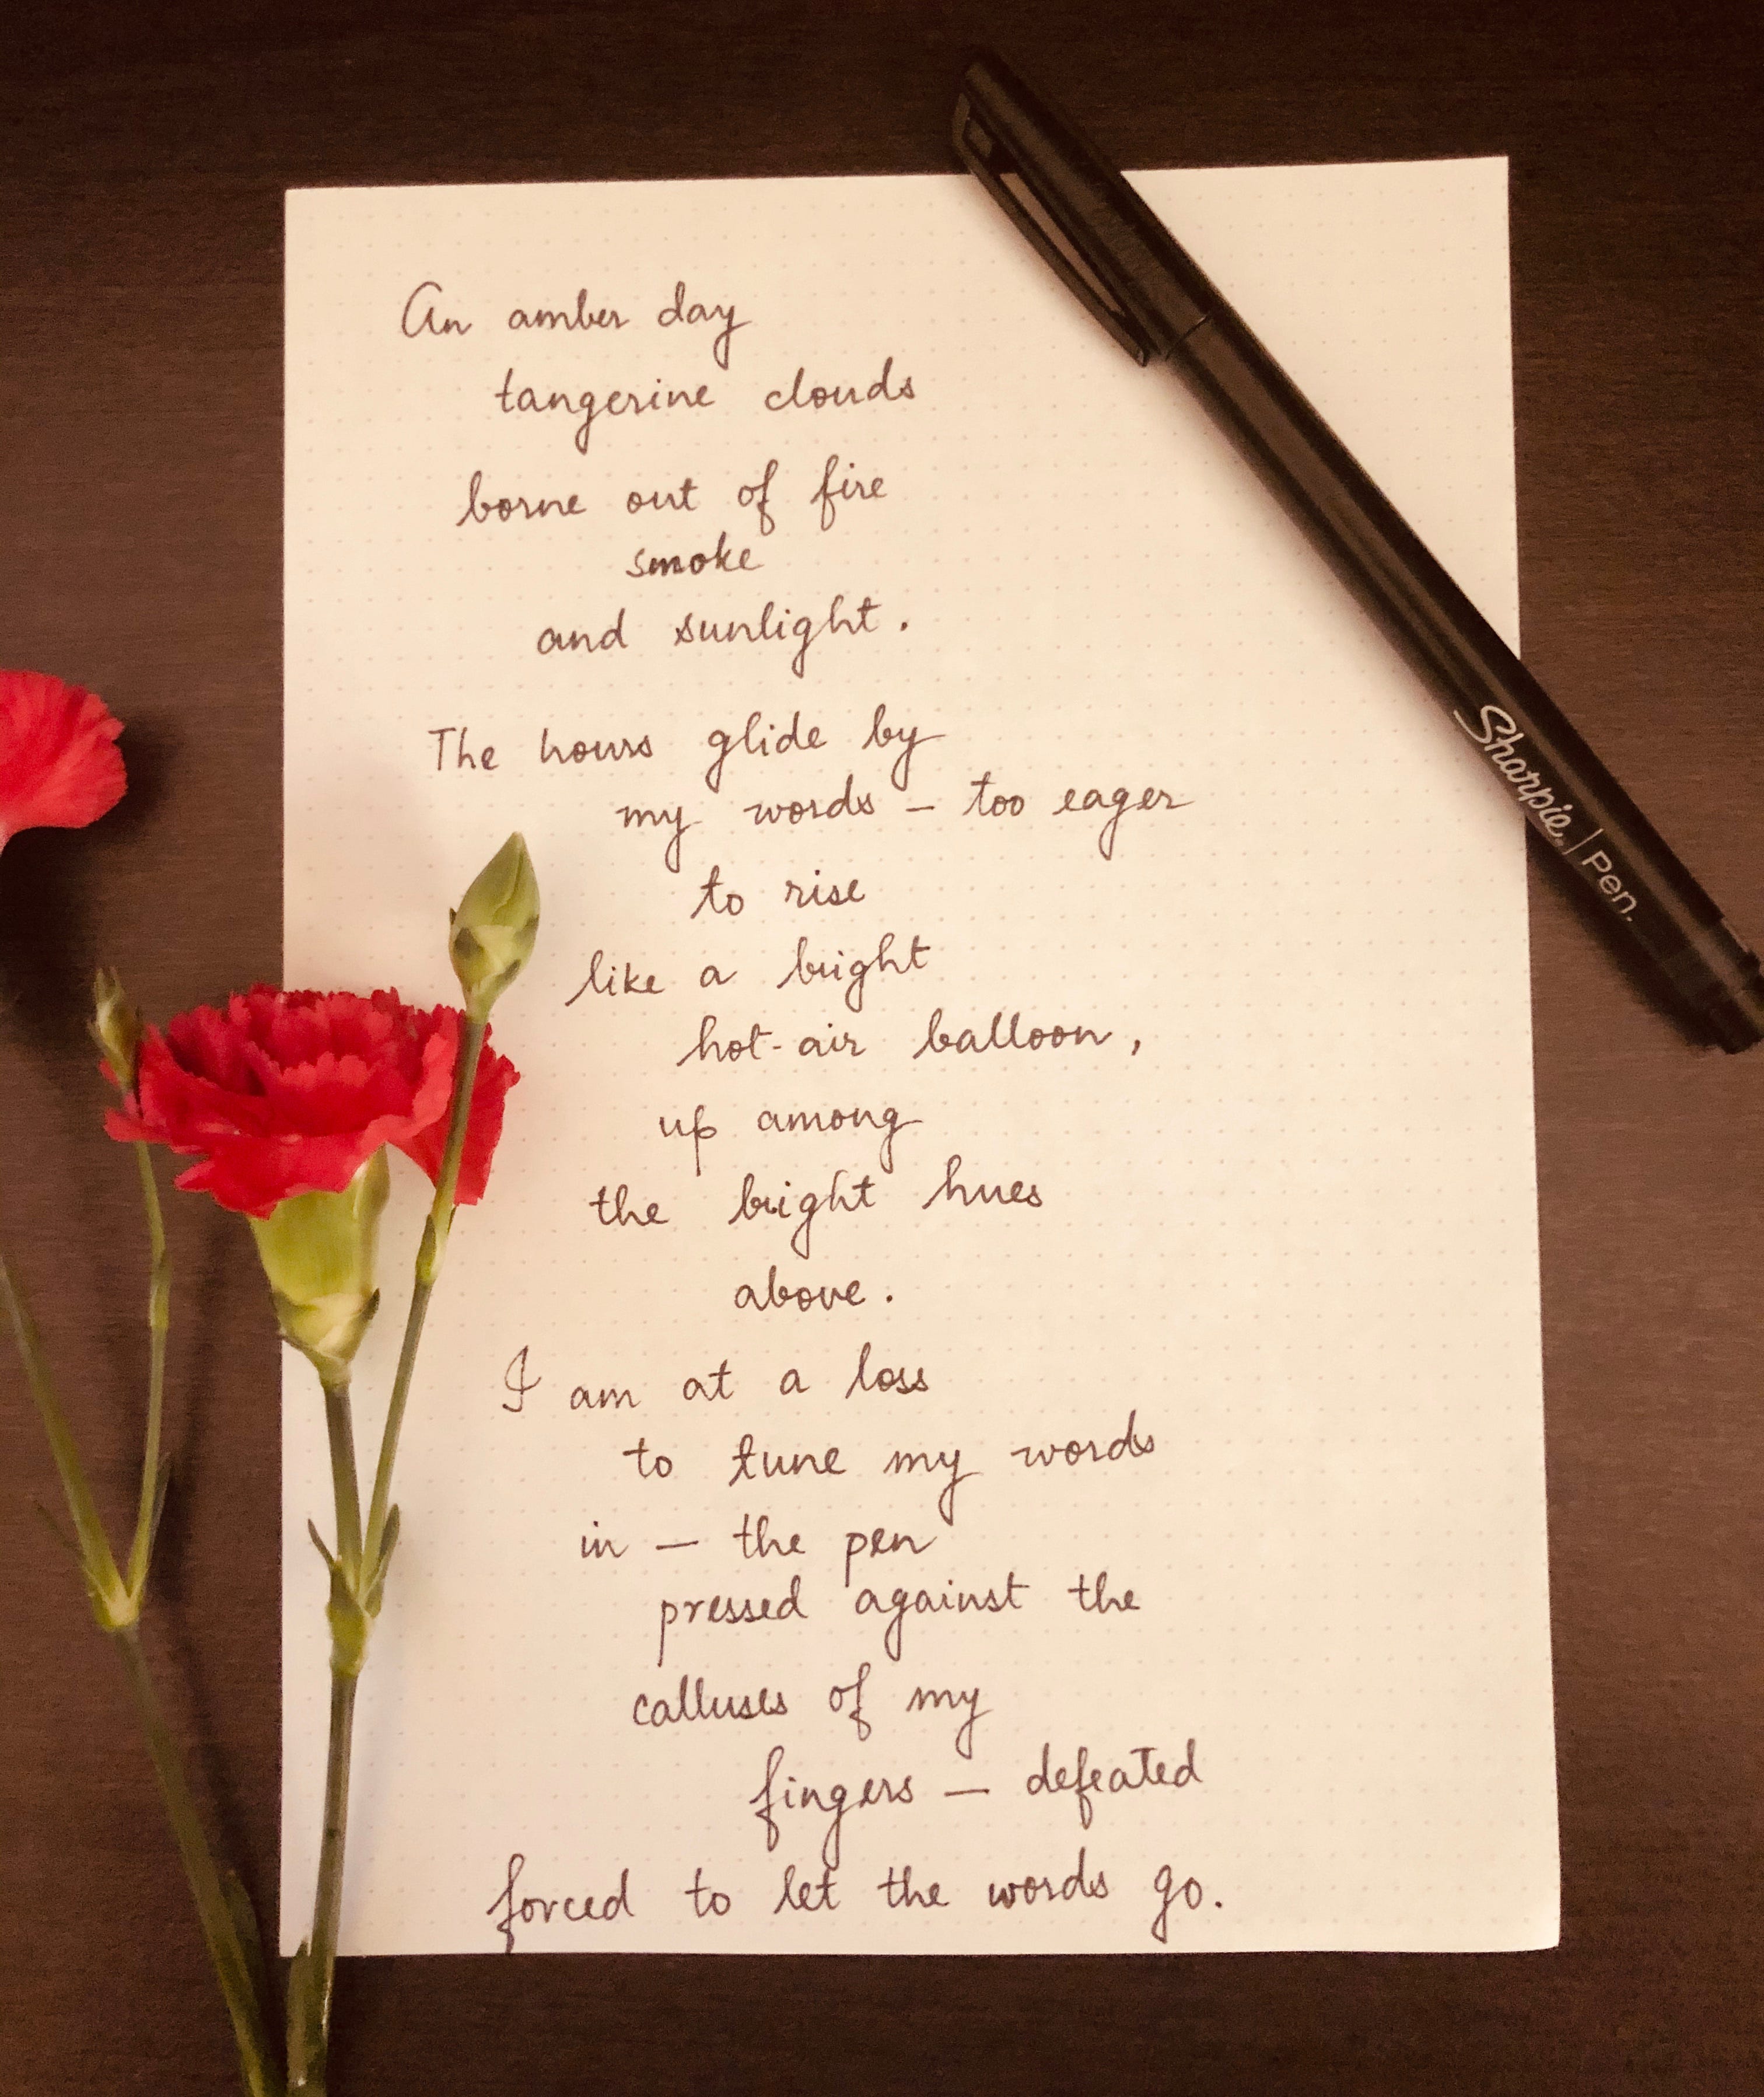 An amber day
tangerine clouds
borne out of fire
smoke
and sunlight.
The hours glide by
my words – too eager
to rise
like a bright
hot-air balloon,
up among
the bright hues
above.
I am at a loss
to tune my words
in — the pen
pressed against the
calluses of my
fingers — defeated
forced to let the words go.
Sharpie. | Pen.